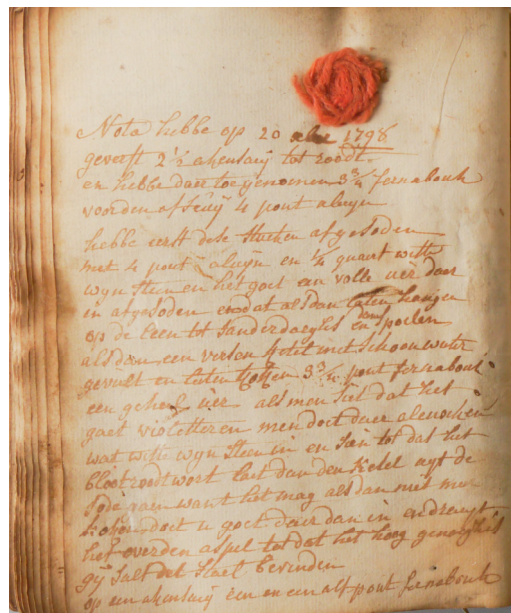 Nota hebbe op 20 1798
geverft 2 1/2 akensaij tot roodt
en hebbe daer toe genomen 3 3/4 fernabouk
voorden afsuij 4 pont aluijn
hebbe eerst dese stucken afgesoden
met 4 pont aluijn en 1/4 quaert witte
wyn steen en het goet een volle uer daer
in afgesoden en dat alsdan laten hangen
op de leen tot sanderdaeghs dan en spoelen
als dan een versen ketel met schoon water
gevult en laten kocken 3 3/4 pont fernabouk
een geheel uer als men siet dat het
gaet violetteren men doet daer alenocken
wat witte wyn steen in en dan tot dat het
bloet roodt wort laet dan den ketel uyt de
sode gaen want het mag als dan niet meer
koken doet u goet daer dan in en draeyt
het over den aspel tot dat het hoog genoeg is
gij salt dit staet bevinden
op een akensaij een en een alf pont fernabouk